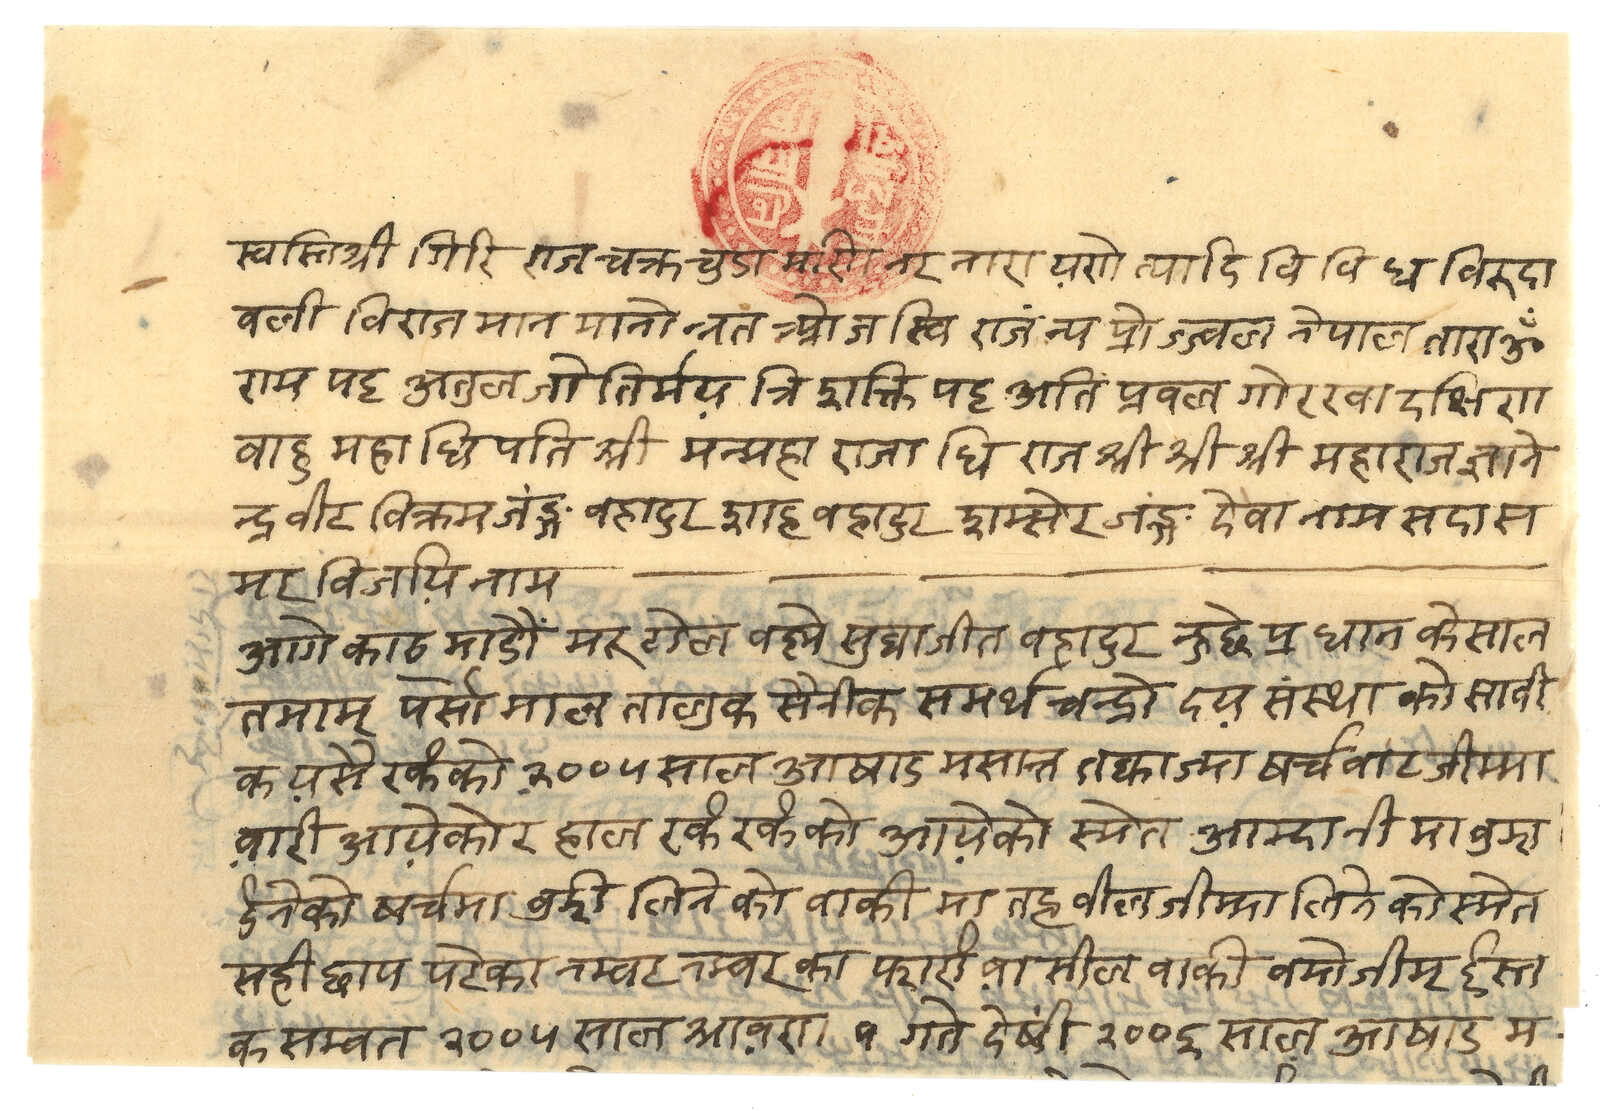 स्वस्तिश्री गिरि राज चक्र चुडा मणी नर नारा य़णे त्यादि वि वि ध विरूदा
वली विराज मान मानो न्नत वोज स्वि राजंन्य प्रोज्ज्वल नेपाल तारा ॐ
राम पट्ट अतुल जो तिर्मय़ त्रि शक्ति पट्ट अति प्रवल गोरखा दक्षिण
वाहु महा धि पति श्री मन्महा राजा धि राज श्री श्री श्री महाराज ज्ञाने
न्द्र वीर विक्रम जंङ्ग वहादुर शाह वहादुर शम्सेर जंङ्ग देवा नाम सदा स
मर विजय़ि नाम
आगे काठ माडौं मरू टोल वस्ने सुद्याजीत वहादुर नुछे प्र धान के साल
तमाम् पर्सा माल तालुक सैनीक समर्थ चन्द्रो दय़ संस्था को सावी
क य़सै रर्कंको २००५ साल आषाड मसान्त तक्काज्मा षर्चवाट जीम्मा
व़ारी आय़ेको र हाल रर्कं रर्कंको आय़ेको स्मेत आम्दानी मा वुझा
ईनेको षर्चमा वुझी लिने को वाकी मा तह वील जीम्मा लिने को स्मेत
सही छाप परेका नम्वर नम्वर का फारां व़ा सील वाकी वमोजीम् ईस्त
क सम्वत २००५ साल श्राव़ण १ गते देषीं २००६ साल आषाड म